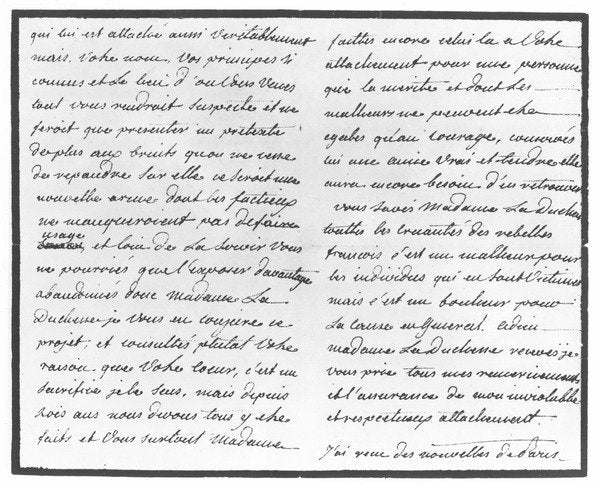 qui lui est attaché aussi veritablement
mais, votre nom, vos principes si
connus et le lieu d'ou vous venes
tout vous rendrait suspecte et ne
feroit que presenter un pretexte
de plus aux bruits qu'on ne cesse
de repandre sur elle ce seroit une
nouvelle arme dont les factieux
ne manqueroient pas de faire
usage
et loin de la servir vous
ne pourriés que l'exposer davantage
abandonnés donc Madame La
Duchesse je vous en conjure ce
projet, et consultés plutot votre
raison que votre coeur, c'est un
sacrifice je le sens, mais depuis
trois ans nous devons tous y etre
faits et vous surtout Madame
faittes encore celui la a votre
attachement pour une personne
qui la merite et dont les
malheurs ne peuvent etre
egalés qu'au courage, conservés
lui une amie vrai et tendre elle
aura encore besoin d'en retrouver
vous savés Madame La Duchesse
touttes les cruautés des rebelles
francois c'est un malheur pour
les individus qui en sont victimes
mais c'est un bonheur pour
la cause en general. adieu
madame La Duchesse recevés je
vous prie tous mes remerciements
et l'assurance de mon inviolable
et respectueux attachement.
J'ai recu des nouvelles de Paris